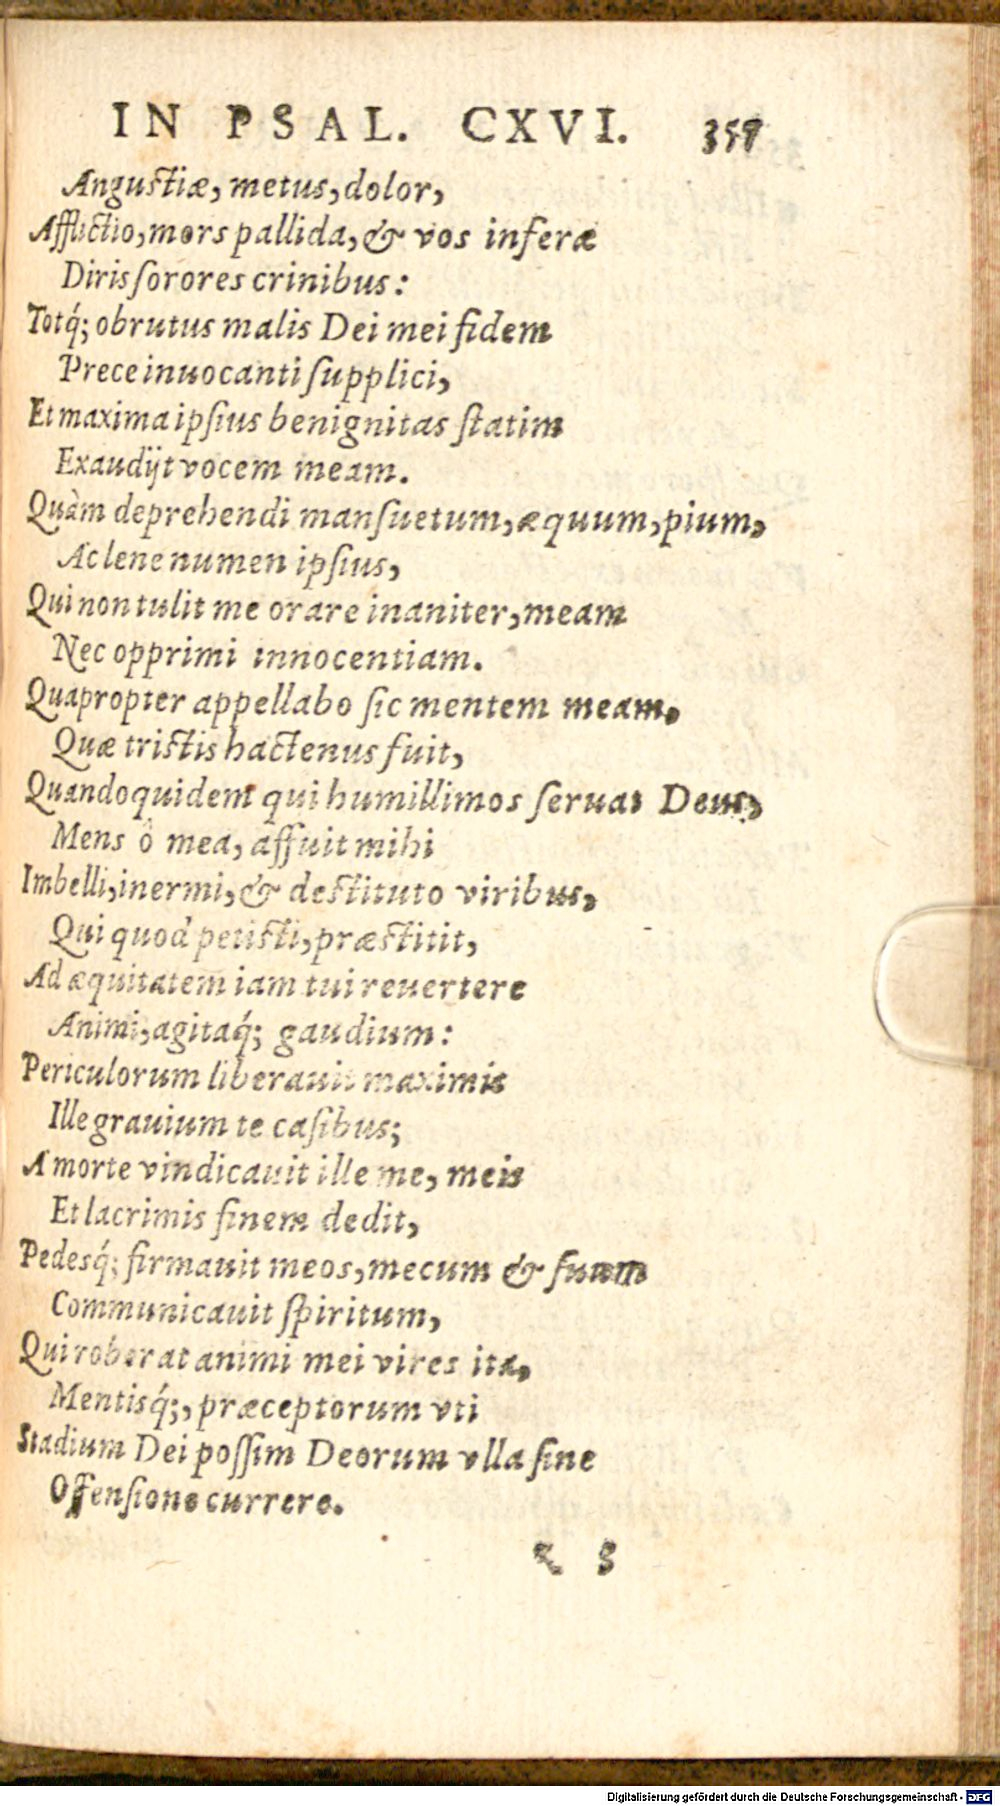 IN PSAL. CXVI. 359
Angustiæ, metus, dolor,
Afflictio, mors pallida, & vos inferæ
Diris sorores crinibus:
Totq́; obrutus malis Dei mei fidem
Prece inuocanti supplici,
Et maxima ipsius benignitas statim
Exaudijt vocem meam.
Quàm deprehendi mansuetum, æquum, pium,
Ac lene numen ipsius,
Qui non tulit me orare inaniter, meam
Nec opprimi innocentiam.
Quapropter appellabo sic mentem meam,
Quæ tristis hactenus fuit,
Quandoquidem qui humillimos seruat Deus,
Mens ô mea, affuit mihi
Imbelli, inermi, & destituto viribus,
Qui quod petisti, præstitit,
Ad æquitatem iam tui reuertere
Animi, agitaq́; gaudium:
Periculorum liberauit maximis
Ille grauium te casibus;
A morte vindicauit ille me, meis
Et lacrimis finem dedit,
Pedesq́; firmauit meos, mecum & suum
Communicauit spiritum,
Qui roberat animi mei vires ita,
Mentisq́;, præceptorum vti
Stadium Dei possim Deorum vlla sine
Offensione currere.
z 3
Digitalisierung gefördert durch die Deutsche Forschungsgemeinschaft - DFG